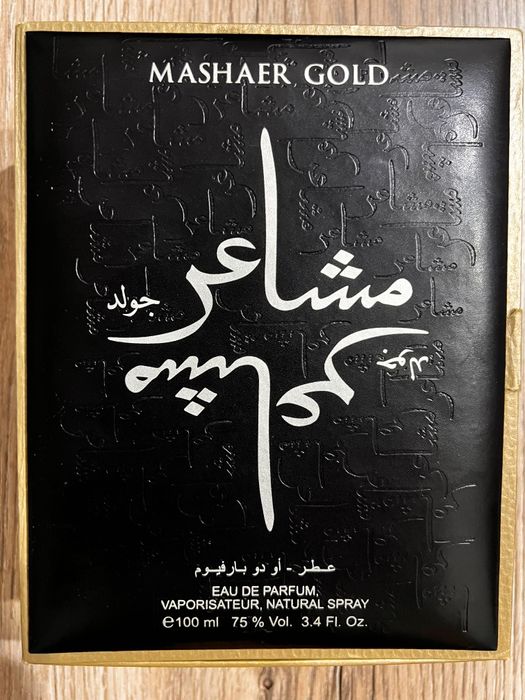 MASHAER GOLD
مشاعر
جولد
مشاعر
جولد
عطر - أو دو بارفيوم
EAU DE PARFUM,
VAPORISATEUR, NATURAL SPRAY
℮100 ml 75 % Vol. 3.4 Fl. Oz.